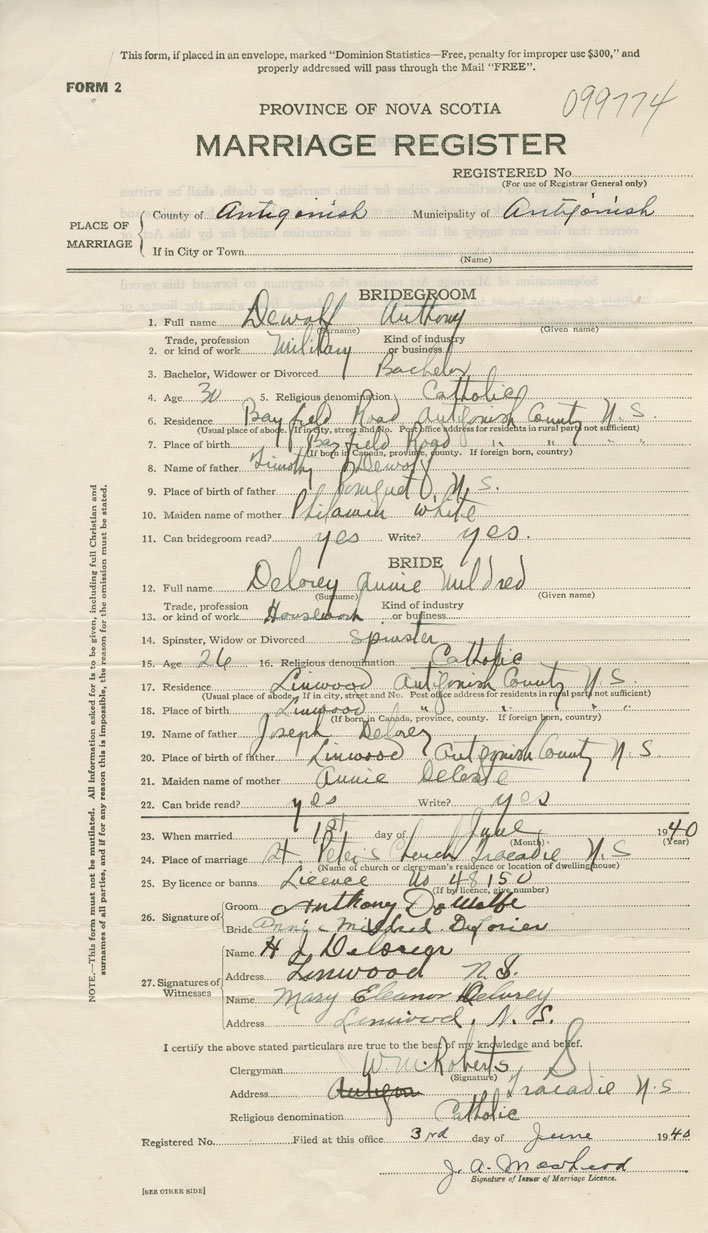 This form, if placed in an envelope, marked "Dominion Statistics—Free, penalty for improper use $300," and
properly addressed will pass through the Mail "FREE".
FORM 2
099774
PROVINCE OF NOVA SCOTIA
MARRIAGE REGISTER
REGISTERED No.
(For use of Registrar General only)
PLACE OF MARRIAGE
County of Antigonish Municipality of Antigonish
If in City or Town
(Name)
BRIDEGROOM
1. Full name Dewolf Anthony
(Surname) (Given name)
Trade, profession Kind of industry
2. or kind of work Military or business
3. Bachelor, Widower or Divorced Bachelor
4. Age 30 5. Religious denomination Catholic
6. Residence Bayfield Road Antigonish County N.S.
(Usual place of abode. If in city, street and No. Post office address for residents in rural parts not sufficient)
7. Place of birth Bayfield Road " " " "
(If born in Canada, province, county. If foreign born, country)
8. Name of father Timothy Dewolf
9. Place of birth of father Pomquet N.S.
10. Maiden name of mother Philamin White
11. Can bridegroom read? yes Write? yes.
BRIDE
12. Full name Delorey Annie Mildred
(Surname) (Given name)
Trade, profession Kind of industry
13. or kind of work Housework or business
14. Spinster, Widow or Divorced Spinster
15. Age 26 16. Religious denomination Catholic
17. Residence Linwood Antigonish County N.S
(Usual place of abode. If in city, street and No. Post office address for residents in rural parts not sufficient)
18. Place of birth Linwood " " " "
(If born in Canada, province, county. If foreign born, country)
19. Name of father Joseph Delorey
20. Place of birth of father Linwood Antigonish County N.S
21. Maiden name of mother Annie Deleste
22. Can bride read? yes Write? yes
23. When married 1st day of June 1940
(Month) (Year)
24. Place of marriage St. Peter's Church Tracadie N.S
(Name of church or clergyman's residence or location of dwelling house)
25. By licence or banns Licence No 48150
(If by licence, give number)
26. Signature of Groom Anthony DeWolfe
Bride Annie Mildred DeLorier
27. Signatures of Witnesses
Name H J Delorey
Address Linwood N.S.
Name Mary Eleanor Delorey
Address Linwood, N.S.
I certify the above stated particulars are true to the best of my knowledge and belief.
Clergyman W. M. Roberts
(Signature)
Address Antigon Tracadie N.S
Religious denomination Catholic
Registered No. Filed at this office 3rd day of June 1940
J. A. Macleod
Signature of Issuer of Marriage Licence.
[SEE OTHER SIDE]
NOTE.—This form must not be mutilated. All information asked for is to be given, including full Christian and
surnames of all parties, and if for any reason this is impossible, the reason for the omission must be stated.